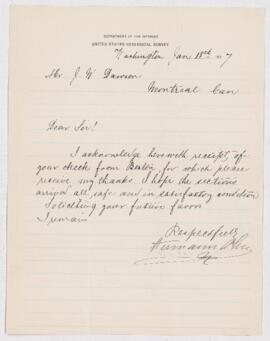 DEPARTMENT OF THE INTERIOR
UNITED STATES GEOLOGICAL SURVEY
Washington Jan 18th 87
Mr. J. W. Dawson
Montreal Can
Dear Sir!
I acknowledge herewith receipt of
your check from Boston for which please
receive my thanks. I hope the sections
arrived all safe and in satisfactory condition
Soliciting your future favors
I remain
Respectfully